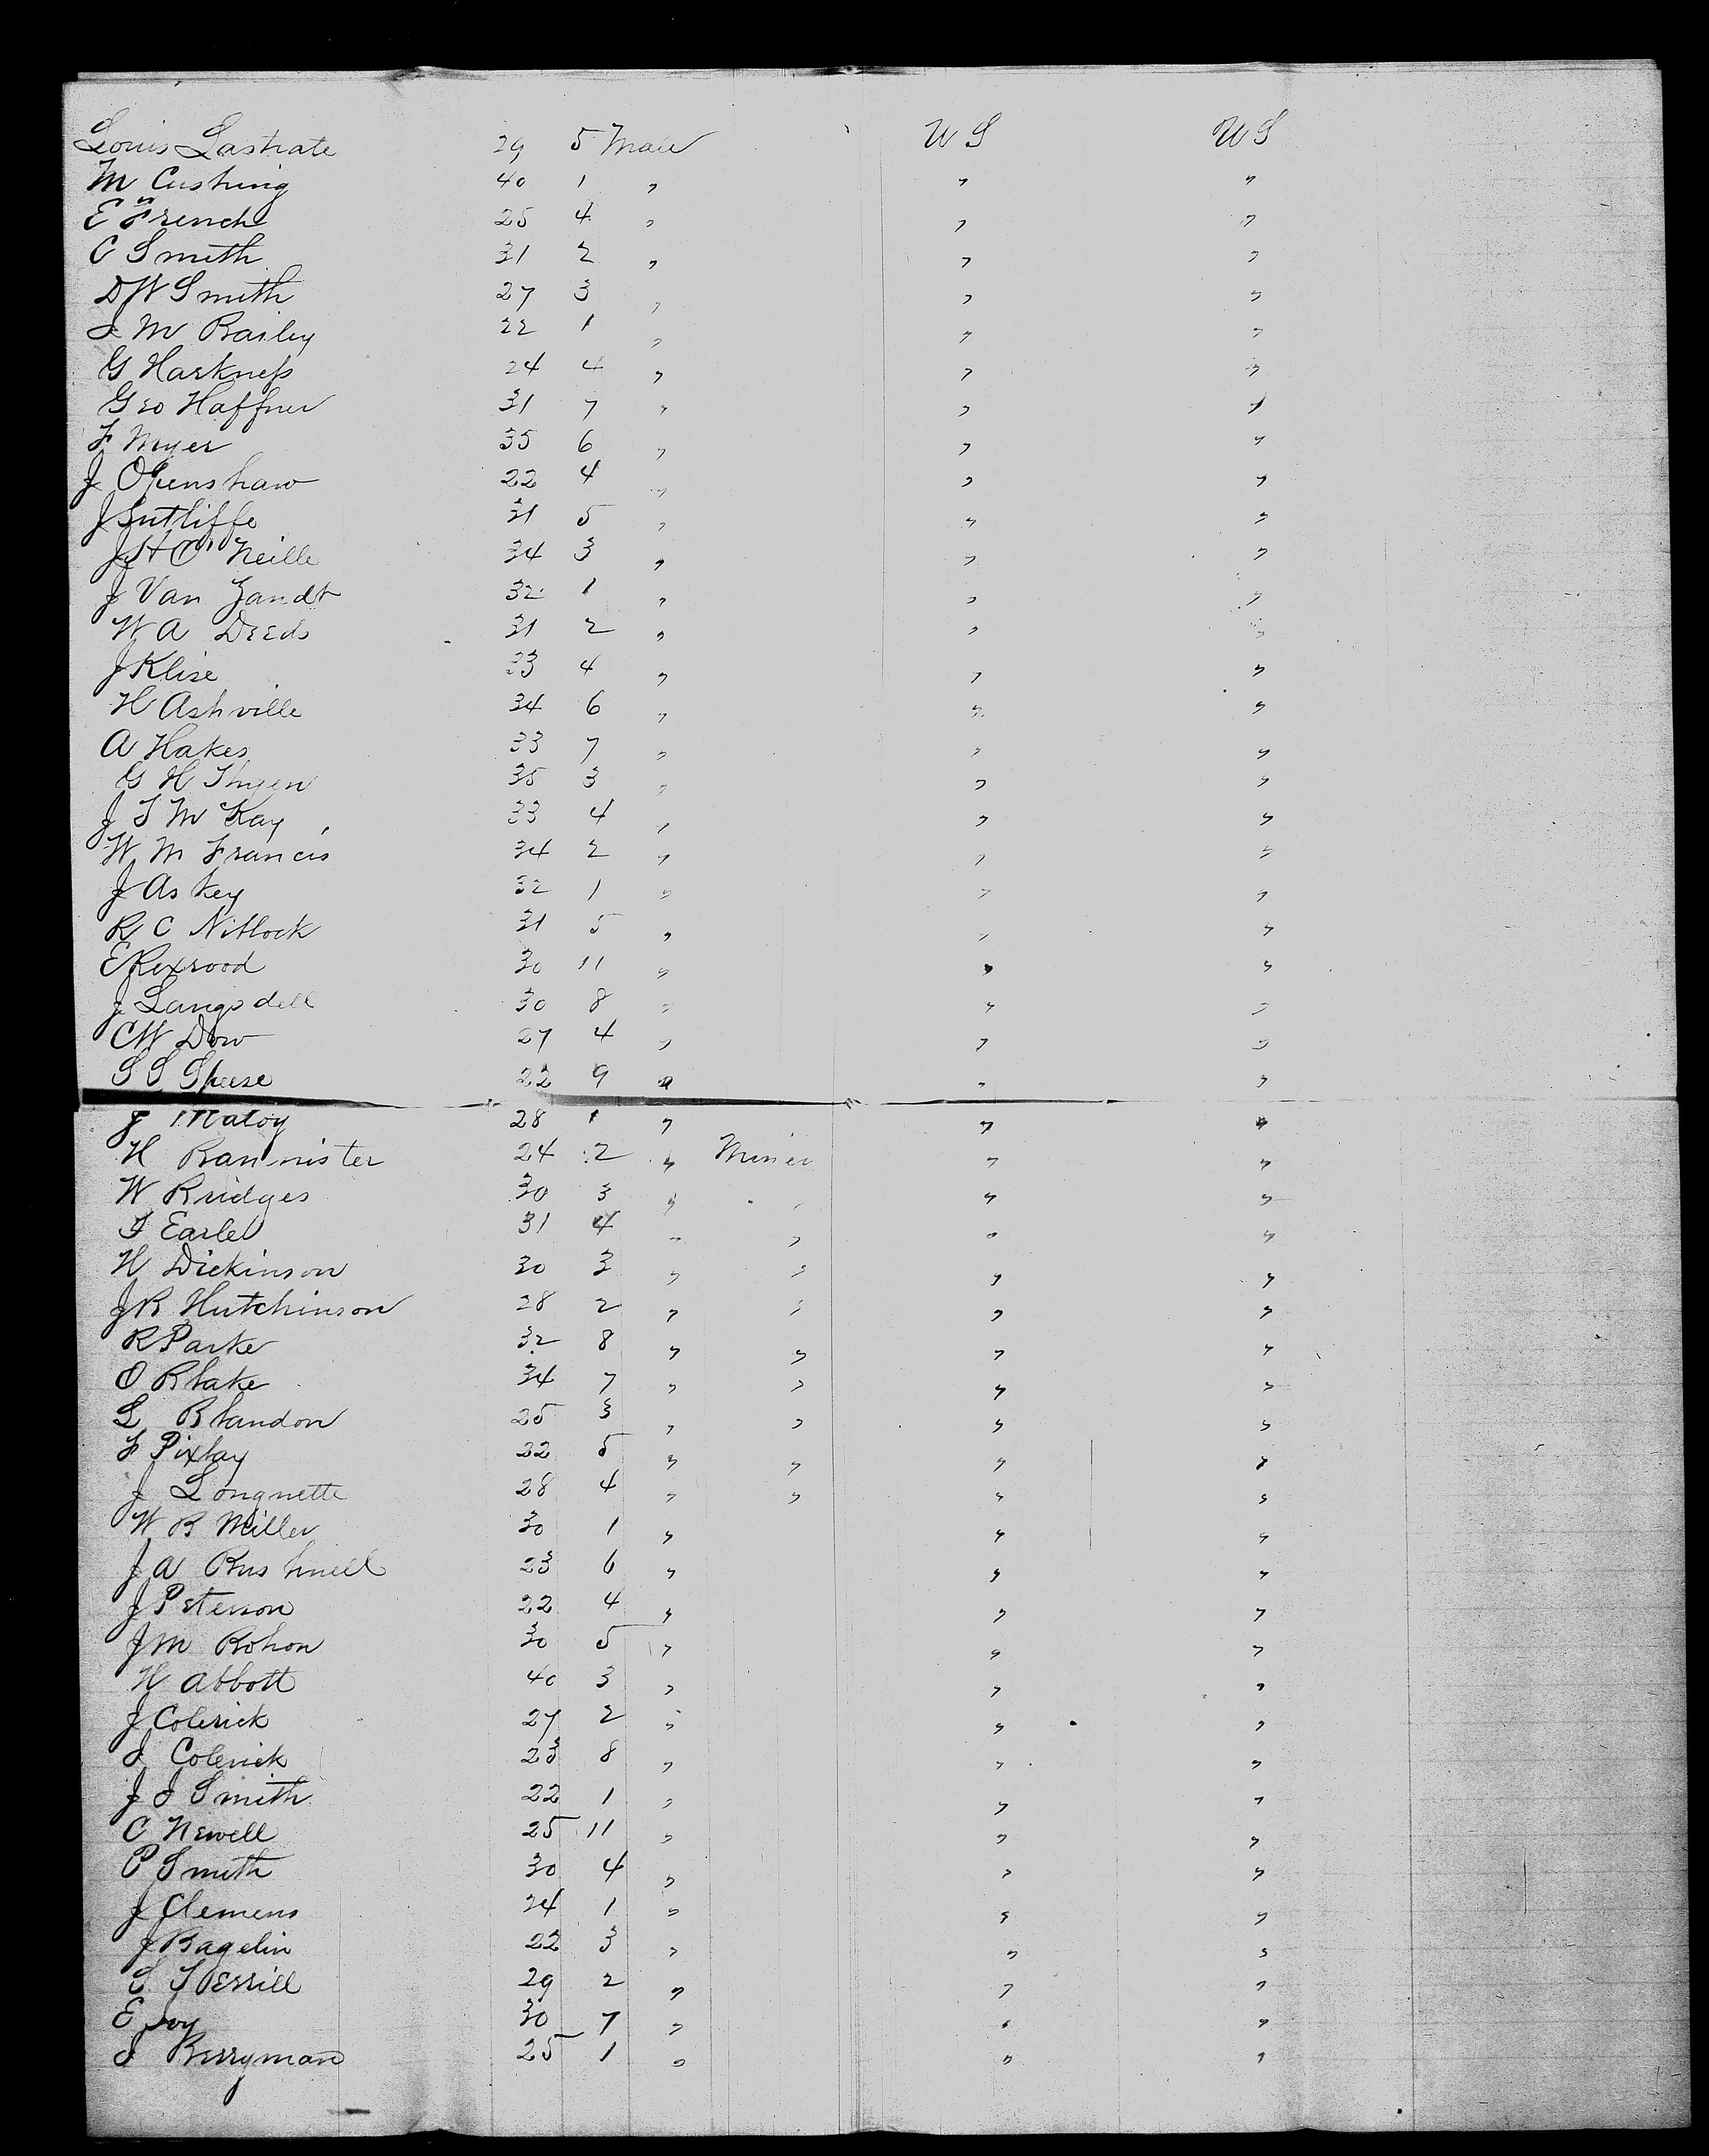 Louis Lastrate 29 5 Male U S U S
M Cushing 40 1 " " "
E French 25 4 " " "
C Smith 31 2 " " "
D W Smith 27 3 " " "
I M Bailey 22 1 " " "
G Harkness 24 4 " " "
Geo Haffner 31 7 " " "
F Myer 35 6 " " "
J Openshaw 22 4 " " "
J Sutliffe 31 5 " " "
J H O'Neille 34 3 " " "
J Van Zandt 32 1 " " "
W A Deeds 31 2 " " "
J Klise 33 4 " " "
H Ashville 34 6 " " "
A Hakes 33 7 " " "
G H Thyen 35 3 " " "
J T McKay 33 4 " " "
W M Francis 34 2 " " "
J Askey 32 1 " " "
R C Nitlock 31 5 " " "
E Rexrood 30 11 " " "
J Langsdell 30 8 " " "
C W Dow 27 4 " " "
S S Speese 22 9 " " "
J Maloy 28 1 " " "
H Bannister 24 2 " Miner " "
W Bridges 30 3 " " " "
T Earle 31 4 " " " "
H Dickinson 30 3 " " " "
J R Hutchinson 28 2 " " " "
R Parke 32 8 " " " "
O Blake 34 7 " " " "
L Blandon 25 3 " " " "
F Pixlay 22 5 " " " "
J Longnette 28 4 " " " "
W B Miller 30 1 " " "
J A Bushnell 23 6 " " "
J Peterson 22 4 " " "
J M Bohon 30 5 " " "
H Abbott 40 3 " " "
J Colerick 27 2 " " "
I Colerick 23 8 " " "
J I Smith 22 1 " " "
C Newell 25 11 " " "
P Smith 30 4 " " "
J Clemens 24 1 " " "
J Bagelin 22 3 " " "
S Terrill 29 2 " " "
E Ivy 30 7 " " "
I Berryman 25 1 " " "